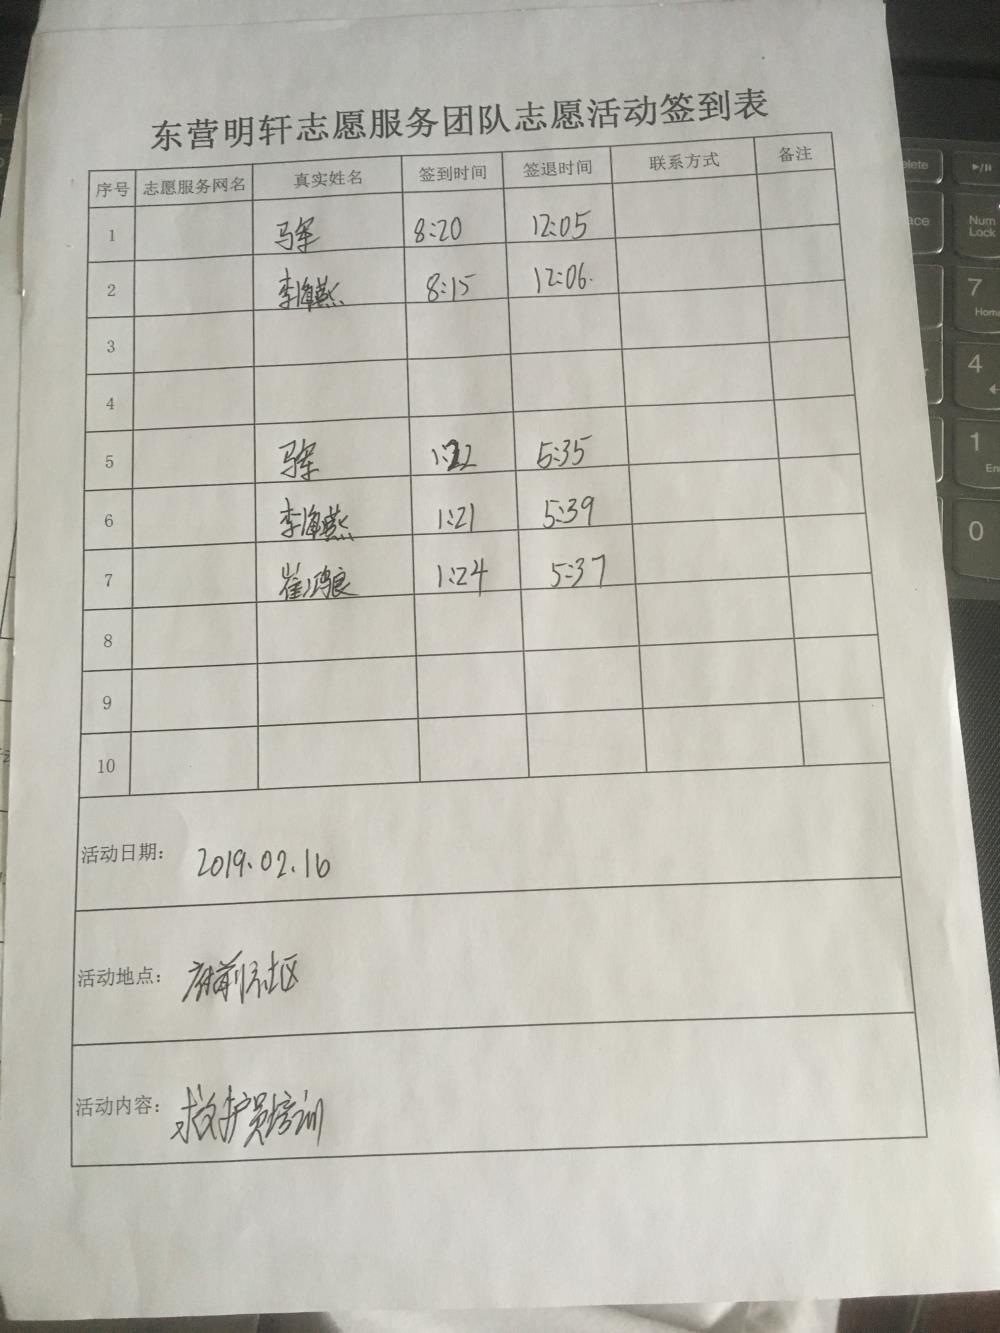 东营明轩志愿服务团队志愿活动签到表
序号 志愿服务网名 真实姓名 签到时间 签退时间 联系方式 备注
1 马军 8:20 12:05
2 李海燕 8:15 12:06.
3
4
5 马军 1:22 5:35
6 李海燕 1:21 5:39
7 崔鸿良 1:24 5:37
8
9
10
活动日期: 2019.02.16
活动地点: 府前社区
活动内容: 救护员培训
elete
Num
Lock
7
Home
4
1
0